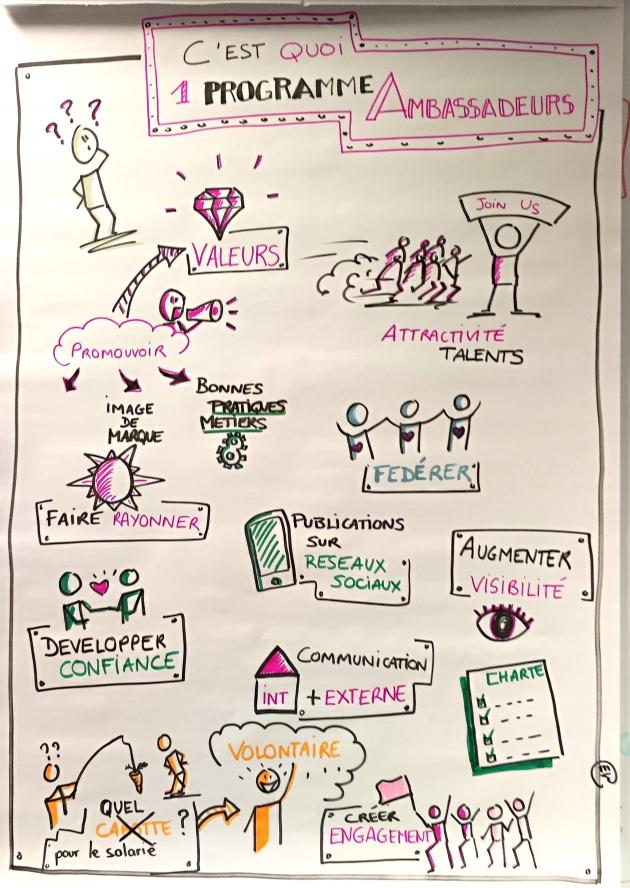 C'EST QUOI
1 PROGRAMME AMBASSADEURS
? ? ?
VALEURS
JOIN US
PROMOUVOIR
ATTRACTIVITÉ
TALENTS
IMAGE
DE
MARQUE
BONNES
PRATIQUES
METIERS
FEDÉRER
FAIRE RAYONNER
PUBLICATIONS
SUR
RESEAUX
SOCIAUX
AUGMENTER
VISIBILITÉ
DEVELOPPER
CONFIANCE
COMMUNICATION
INT + EXTERNE
CHARTE
??
QUEL
CAROTTE ?
pour le salarié
VOLONTAIRE
CRÉER
ENGAGEMENT